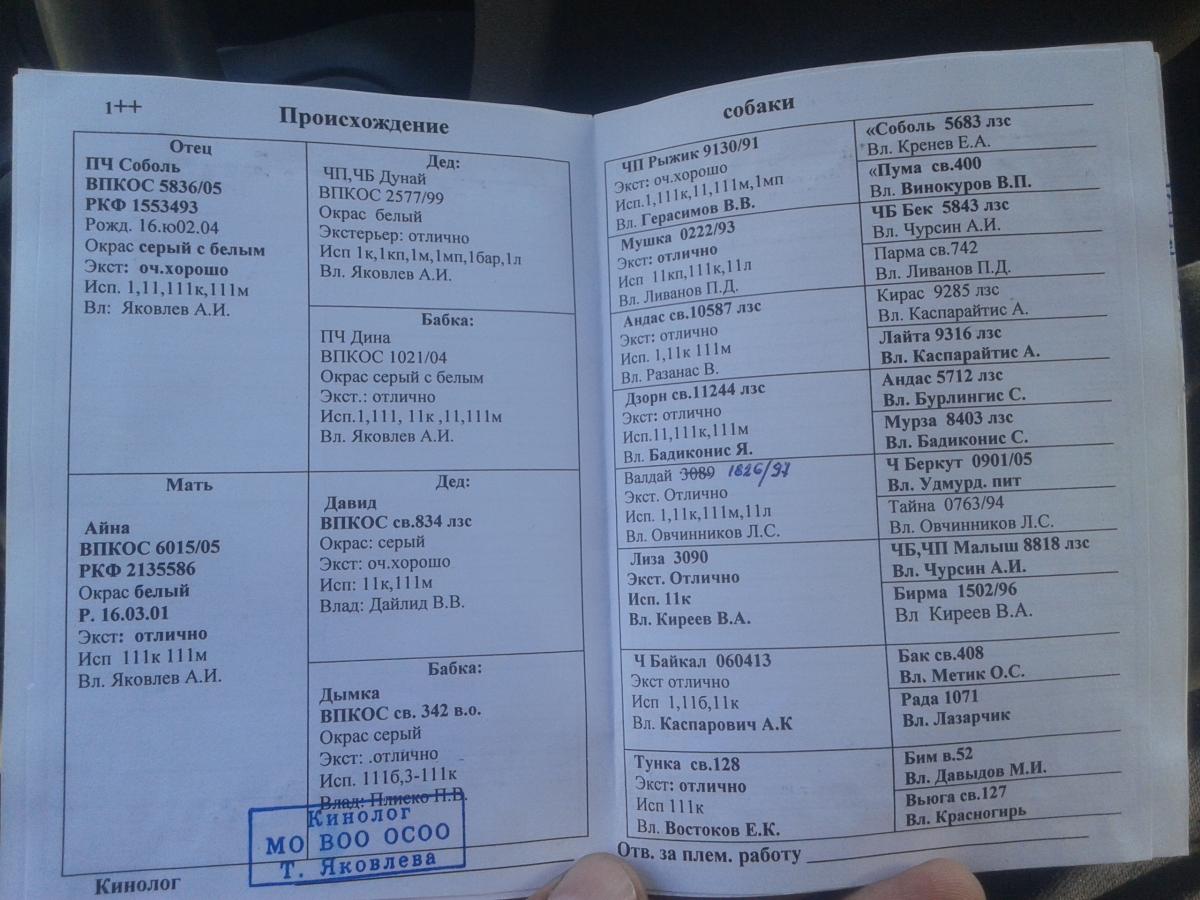 1++
Происхождение
Отец
ПЧ Соболь
ВПКОС 5836/05
РКФ 1553493
Рожд. 16.ю02.04
Окрас серый с белым
Экст: оч.хорошо
Исп. 1,11,111к,111м
Вл: Яковлев А.И.
Дед:
ЧП,ЧБ Дунай
ВПКОС 2577/99
Окрас белый
Экстерьер: отлично
Исп 1к,1кп,1м,1мп,1бар,1л
Вл. Яковлев А.И.
Бабка:
ПЧ Дина
ВПКОС 1021/04
Окрас серый с белым
Экст.: отлично
Исп.1,111, 11к ,11,111м
Вл. Яковлев А.И.
Мать
Айна
ВПКОС 6015/05
РКФ 2135586
Окрас белый
Р. 16.03.01
Экст: отлично
Исп 111к 111м
Вл. Яковлев А.И.
Дед:
Давид
ВПКОС св.834 лзс
Окрас: серый
Экст: оч.хорошо
Исп: 11к,111м
Влад: Дайлид В.В.
Бабка:
Дымка
ВПКОС св. 342 в.о.
Окрас серый
Экст: .отлично
Исп. 111б,3-111к
Влад: Плиеко Н.В.
Кинолог
МО ВОО ОСОО
Т. Яковлева
Кинолог
собаки
ЧП Рыжик 9130/91
Экст: оч.хорошо
Исп.1,111к,11,111м,1мп
Вл. Герасимов В.В.
Мушка 0222/93
Экст: отлично
Исп 11кп,111к,11л
Вл. Ливанов П.Д.
Андас св.10587 лзс
Экст: отлично
Исп. 1,11к 111м
Вл. Разанас В.
Дзорн св.11244 лзс
Экст: отлично
Исп.11,111к,111м
Вл. Бадиконис Я.
Валдай 3089 1826/97
Экст. Отлично
Исп. 1,11к,111м,11л
Вл. Овчинников Л.С.
Лиза 3090
Экст. Отлично
Исп. 11к
Вл. Киреев В.А.
Ч Байкал 060413
Экст отлично
Исп 1,11б,11к
Вл. Каспарович А.К
Тунка св.128
Экст: отлично
Исп 111к
Вл. Востоков Е.К.
«Соболь 5683 лзс
Вл. Кренев Е.А.
«Пума св.400
Вл. Винокуров В.П.
ЧБ Бек 5843 лзс
Вл. Чурсин А.И.
Парма св.742
Вл. Ливанов П.Д.
Кирас 9285 лзс
Вл. Каспарайтис А.
Лайта 9316 лзс
Вл. Каспарайтис А.
Андас 5712 лзс
Вл. Бурлингис С.
Мурза 8403 лзс
Вл. Бадиконис С.
Ч Беркут 0901/05
Вл. Удмурд. пит
Тайна 0763/94
Вл. Овчинников Л.С.
ЧБ,ЧП Малыш 8818 лзс
Вл. Чурсин А.И.
Бирма 1502/96
Вл Киреев В.А.
Бак св.408
Вл. Метик О.С.
Рада 1071
Вл. Лазарчик
Бим в.52
Вл. Давыдов М.И.
Вьюга св.127
Вл. Красногирь
Отв. за плем. работу